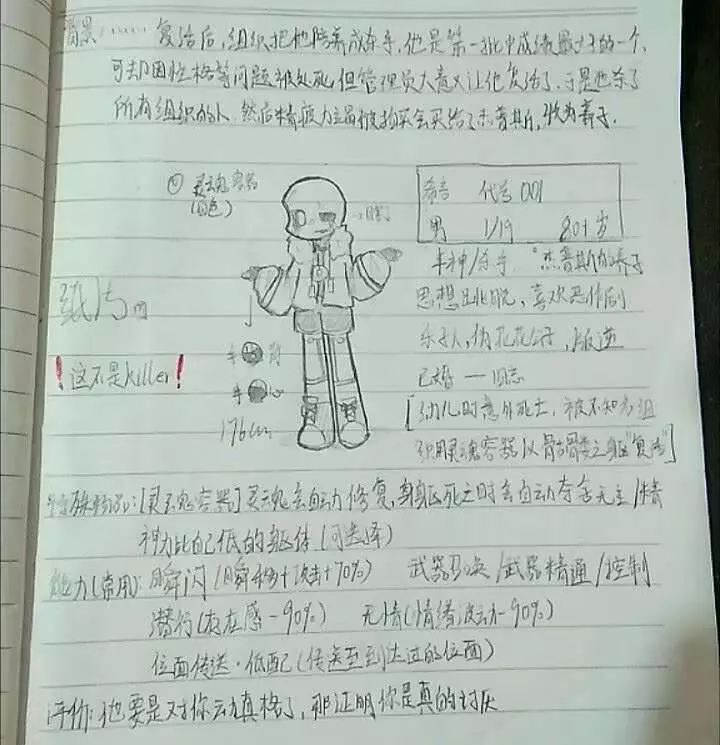 背景:…… 复活后,组织把他培养成杀手,他是第一批中成绩最好的一个,
可却因性格等问题被处死,但管理员大意又让他复活了,于是他杀了
所有组织的人,然后精疲力尽被拍卖会买给了杰普斯,收为养子.
① 灵魂容器
(白色)
希吉 代号001
男 1/19 801岁
半神/杀手 *杰普斯的养子
思想,喜欢恶作剧
乐子人,伪花花公子,叛逆
已婚一
[幼儿时意外死亡,被不知名组
织用灵魂容器以骷髅之躯"复活"]
纸片
!这不是killer!
手 背
手 心
176cm
特殊物品:[灵魂容器]灵魂会自动修复,身躯死亡时会自动夺舍无主/精
神力比己低的躯体(可选择)
能力(常用):瞬闪(瞬移+攻击+70%) 武器召唤/武器精通/控制
潜行(存在感-90%) 无情(情绪波动-90%)
位面传送·低配(传送至到达过的位面)
评价:他要是对你动真格了,那证明你是真的讨厌